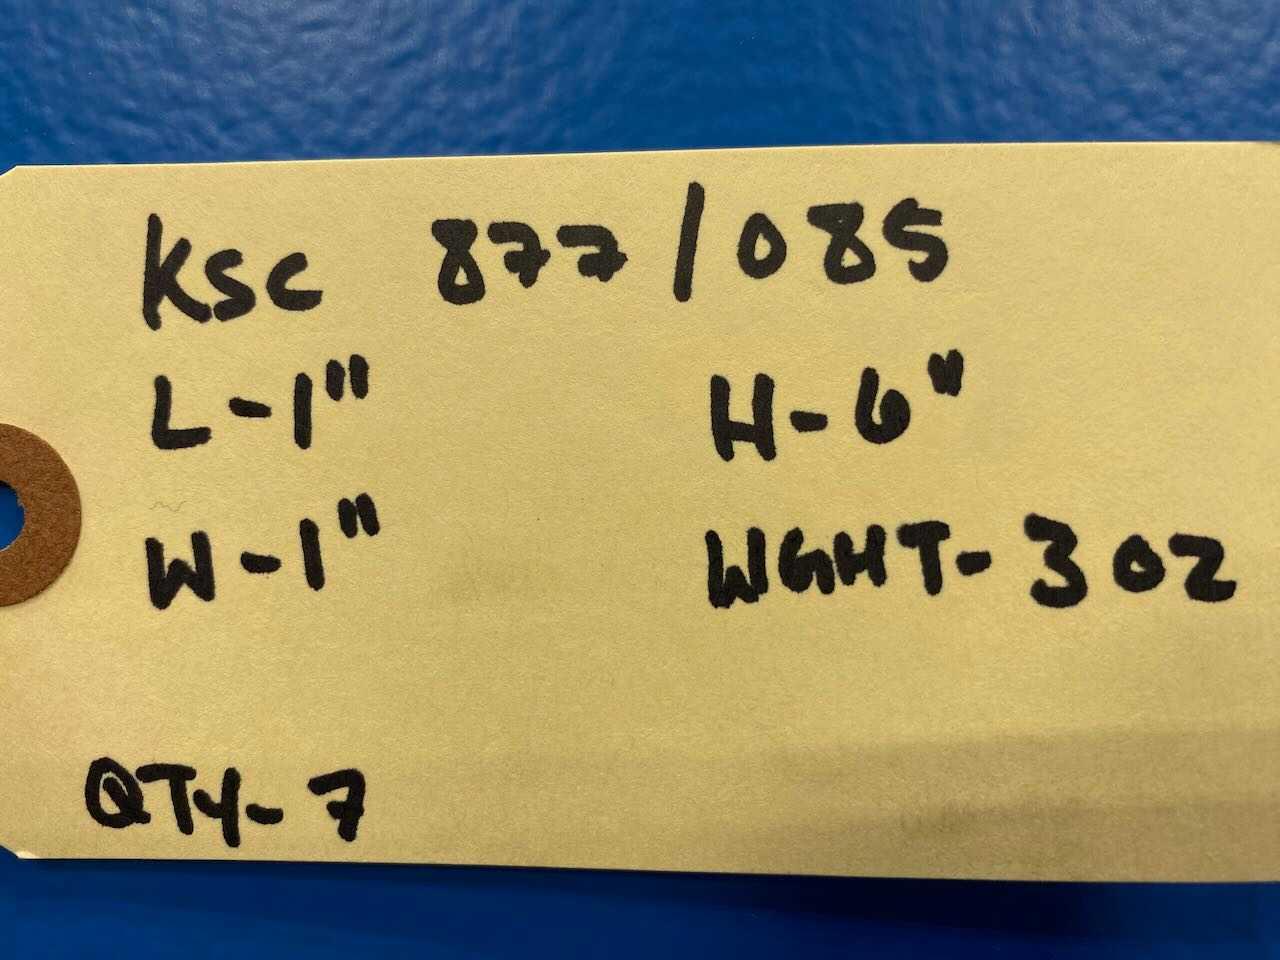 KSC 877/085
L-1" H-6"
W-1" WGHT-3 OZ
QTY-7